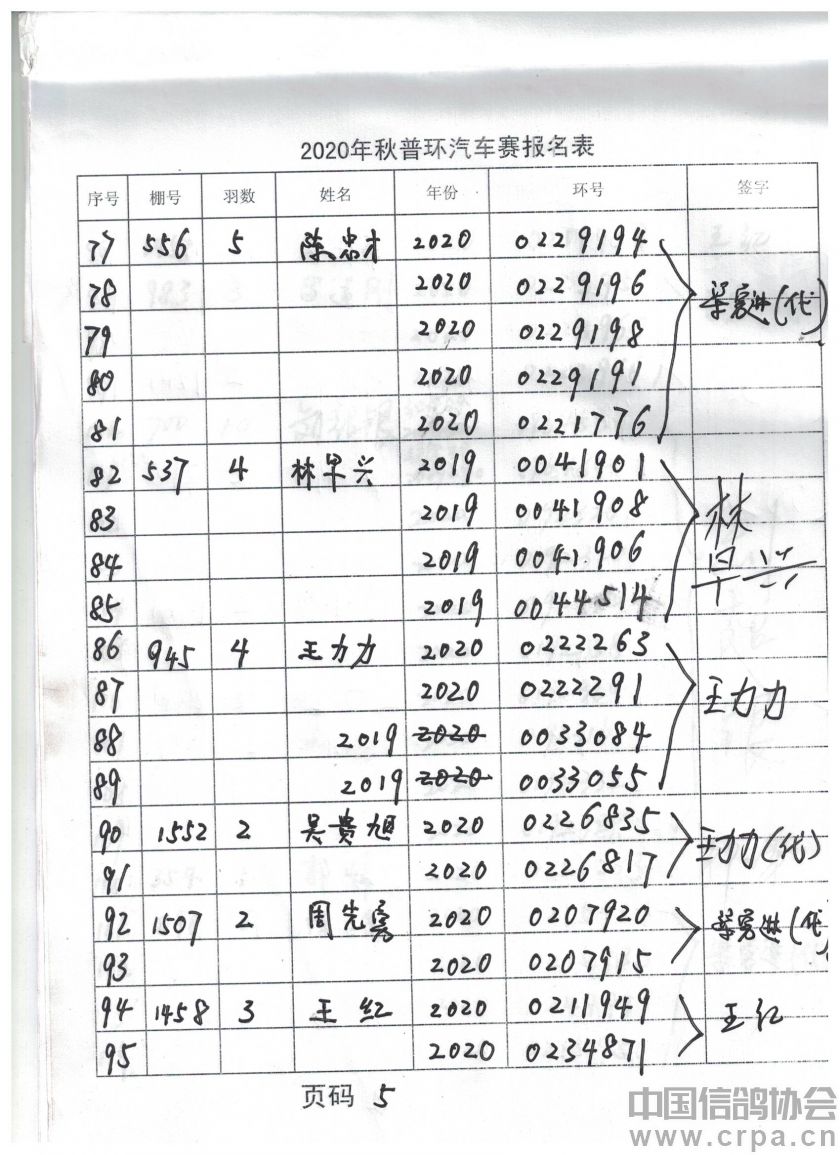 2020年秋普环汽车赛报名表
序号 棚号 羽数 姓名 年份 环号 签字
77 556 5 陈忠才 2020 0229194
78 2020 0229196 (代)
79 2020 0229198
80 2020 0229191
81 2020 0221776
82 537 4 林早兴 2019 0041901
83 2019 0041908 林
84 2019 0041906 早兴
85 2019 0044514
86 945 4 王力力 2020 0222263
87 2020 0222291 王力力
88 2019 2020 0033084
89 2019 2020 0033055
90 1552 2 吴贵旭 2020 0226835 王力力(代)
91 2020 0226817
92 1507 2 周先亮 2020 0207920 (代
93 2020 0207915
94 1458 3 王红 2020 0211949 王红
95 2020 0234871
页码 5
中国信鸽协会
www.crpa.cn